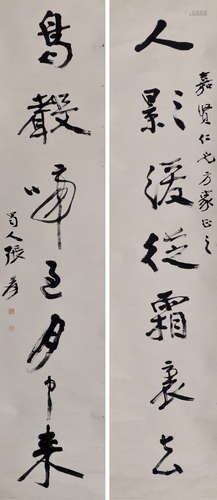 嘉賢仁兄方家正之
人影緩從霜裏去
鳥聲啼過月中来
蜀人張爰